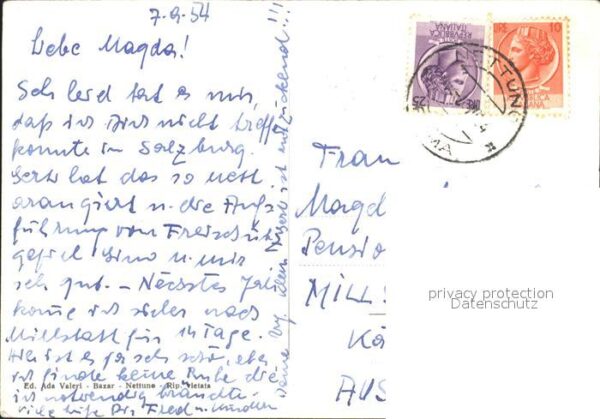 7.9.54
Liebe Magda!
Sehr leid tat es mir,
daß ich Dich nicht treffen
konnte in Salzburg.
Gerti hat das so nett
arangiert u. die Auf-
führung vom Freischütz
gefiel Gino u. mir
sehr gut. - Nächstes Jahr
komme ich sicher nach
Millstatt für 14 Tage.
Hier ist es ja sehr schön, aber
ich finde keine Ruhe die
ich notwendig brauchte.
Viele Fred u.
Deine dein ist entzückend!!!
Ed. Ada Valeri - Bazar - Nettuno - Rip. vietata
REPVBBLICA
ITALIANA
25
LIRE
LIRE 10
ITALIANA
NETTUNO
ROMA
Frau
Magd
Pensio
MILLS
Kä
AUS
privacy protection
Datenschutz